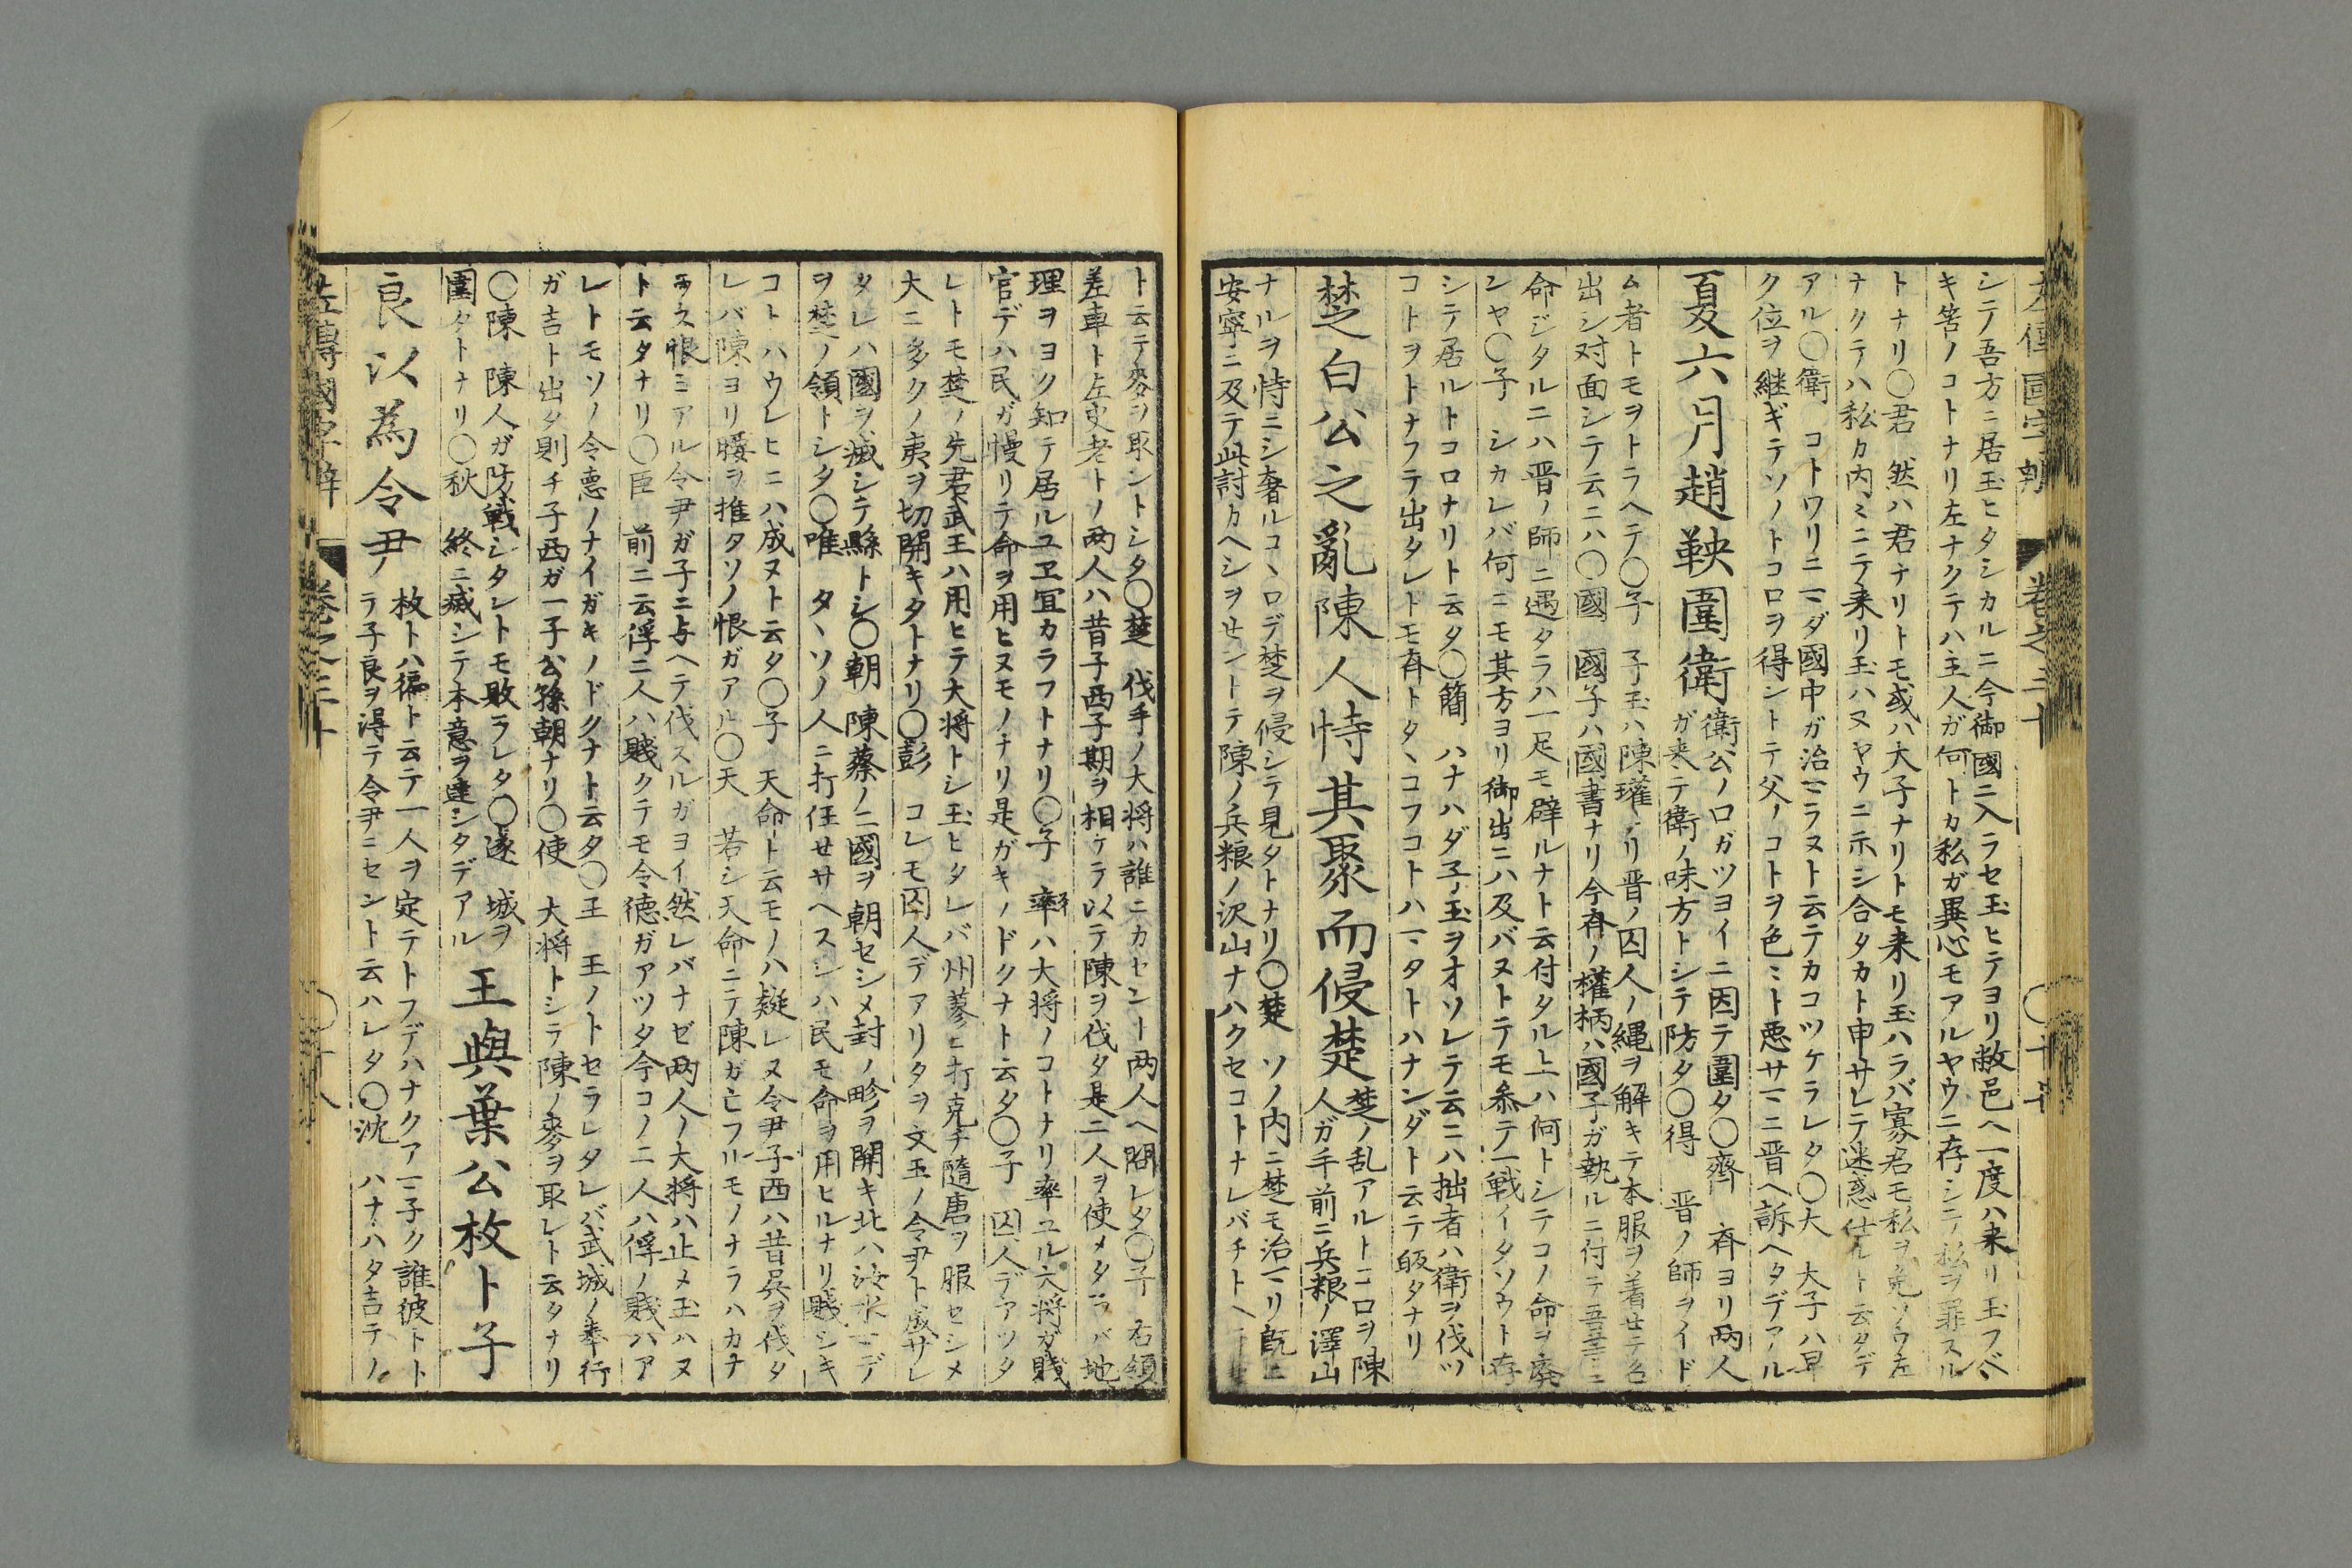 シテ吾方ニ居玉ヒタシカルニ今御國ニ入ラセ玉ヒテヨリ敝邑ヘ一度ハ来リ玉フベ
キ筈ノコトナリ左ナクテハ主人ガ何トカ私ガ異心モアルヤウニ存シテ私ヲ罪スル
トナリ〇君 然ハ君ナリトモ或ハ大子ナリトモ来リ玉ハラバ寡君モ私ヲ免ソウ左
ナクテハ私カ内ミニテ来リ玉ハヌヤウニ示シ合タカト申サレテ迷惑仕ルト云タデ
アル〇衛 コトワリニマダ國中ガ治マラヌト云テカコツケラレタ〇大 大子ハ早
ク位ヲ継ギテソノトコロヲ得ントテ父ノコトヲ色ミト悪サマニ晋ヘ訴ヘタデアル
夏六月趙鞅圍衛
衛公ノ口ガツヨイニ因テ圍タ〇齊 斉ヨリ両人
ガ来テ衛ノ味方トシテ防タ〇得 晋ノ師ヲイド
ム者トモヲトラヘテ〇子 子玉ハ陳瓘ナリ晋ノ囚人ノ縄ヲ解キテ本服ヲ着セテ
出シ対面シテ云ニハ〇國 國子ハ國書ナリ今斉ノ權柄ハ國子ガ執ルニ付テ吾
命ジタルニハ晋ノ師ニ遇タラハ一足モ辟ルナト云付タル上ハ何トシテコノ命ヲ廃
ンヤ〇子 シカレバ何ニモ其方ヨリ御出ニハ及バヌトテモ参テ一戦イタソウト存
シテ居ルトコロナリト云タ〇簡 ハナハダ子玉ヲオソレテ云ニハ拙者ハ衛ヲ伐ツ
コトヲトナフテ出タレトモ斉トタヽコフコトハマタトハナンダト云テ皈タナリ
楚白公之亂陳人恃其聚而侵楚
楚ノ乱アルトコロヲ陳
人ガ手前ニ兵粮ノ澤山
ナルヲ恃ニシ奢ルコヽロデ楚ヲ侵シテ見タトナリ〇楚 ソノ内ニ楚モ治マリ既ニ
安寧ニ及テ此討カヘシヲセントテ陳ノ兵粮ノ沢山ナハクセコトナレバチト
ト云テ麥ヲ取ントシタ〇楚 伐手ノ大将ハ誰ニカセント両人ヘ問レタ〇子 右領
差車ト左史老トノ両人ハ昔子西子期ヲ相ケテ以テ陳ヲ伐タ是二人ヲ使メタラバ地
理ヲヨク知テ居ルユヱ冝カラフトナリ〇子 率ハ大将ノコトナリ率ユル大将ガ賎
官デハ民ガ慢リテ命ヲ用ヒヌモノナリ是ガキノドクナト云タ〇子 囚人デアツタ
レトモ楚ノ先君武王ハ用ヒテ大将トシ玉ヒタレバ州蓼ヒ打克チ隨唐ヲ服セシメ
大ニ多クノ夷ヲ切開キタトナリ〇彭 コレモ囚人デアリタヲ文王ノ令尹ト成サレ
タレハ國ヲ滅シテ縣トシ〇朝 陳蔡ノ二國ヲ朝セシメ封ノ畛ヲ開キ北ハ汝水マデ
ヲ楚ノ領トシタ〇唯 タヽソノ人ニ打任セサヘスレハ民モ命ヲ用ヒルナリ賎シキ
コトハウレヒニハ成ヌト云タ〇子 天命ト云モノハ疑レヌ令尹子西ハ昔呉ヲ伐タ
レバ陳ヨリ腰ヲ推タソノ恨ガアル〇天 若シ天命ニテ陳ガ亡フルモノナラハカナ
ラス恨ミアル令尹ガ子ニ与ヘテ伐スルガヨイ然レバナゼ両人ノ大将ハ止メ玉ハヌ
ト云タナリ〇臣 前ニ云俘二人ハ賎クテモ令徳ガアツタ今コノ二人ハ俘ノ賎ハア
レトモソノ令悳ノナイガキノドクナト云タ〇王 王ノトセラレタレバ武城ノ奉行
ガ吉ト出タ則チ子西ガ一子公孫朝ナリ〇使 大将トシテ陳ノ麥ヲ取レト云タナリ
〇陳 陳人ガ防戦シタレトモ敗ラレタ〇遂 城ヲ
圍タトナリ〇秋 終ニ滅シテ本意ヲ達シタデアル
王與葉公枚卜子
良以為令尹
枚トハ徧ト云テ一人ヲ定テトフデハナクアマ子ク誰彼トト
ノラ子良ヲ得テ令尹ニセント云ハレタ〇沈 ハナハタ吉テノ